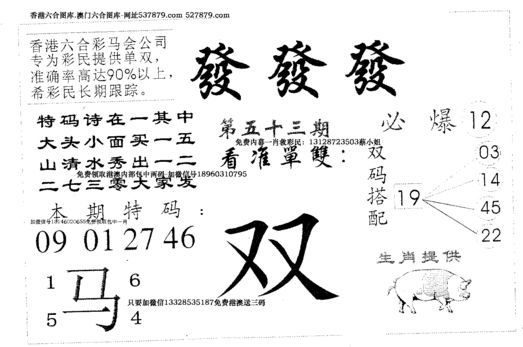 香港六合图库.澳门六合图库-网址537879.com 527879.com
香港六合彩马会公司
专为彩民提供单双,
准确率高达90%以上,
希彩民长期跟踪。
發 發 發
特码诗在一其中
大头小面买一五
山清水秀出一二
二七三零大家发
第五十三期
免费内幕一肖救彩民:13128723503蔡小姐
看准單雙:
免费领取港澳内部包中两码-加微信号18960310795
必爆12
双码搭配
19
03
14
45
22
本期特码:
09 01 27 46
双
生肖提供
1 6
马
5 4
只要加微信13328535187免费港澳送三码